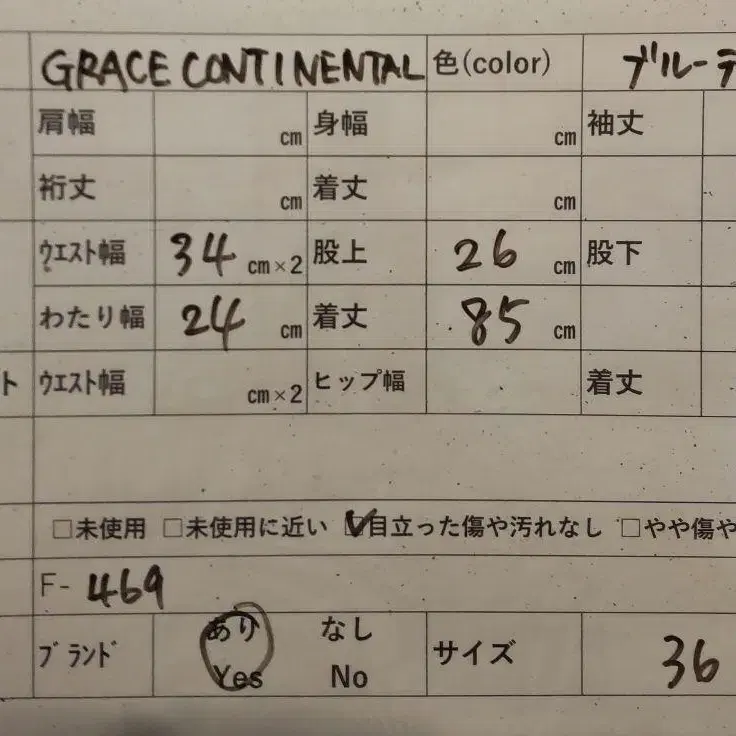 GRACE CONTINENTAL 色(color) ブルーデ
肩幅 cm 身幅 cm 袖丈
裄丈 cm 着丈 cm
ウエスト幅 34 cm×2 股上 26 cm 股下
わたり幅 24 cm 着丈 85 cm
ト ウエスト幅 cm×2 ヒップ幅 着丈
□未使用 □未使用に近い ☑目立った傷や汚れなし □やや傷や
F- 469
ブランド あり なし サイズ 36
Yes No